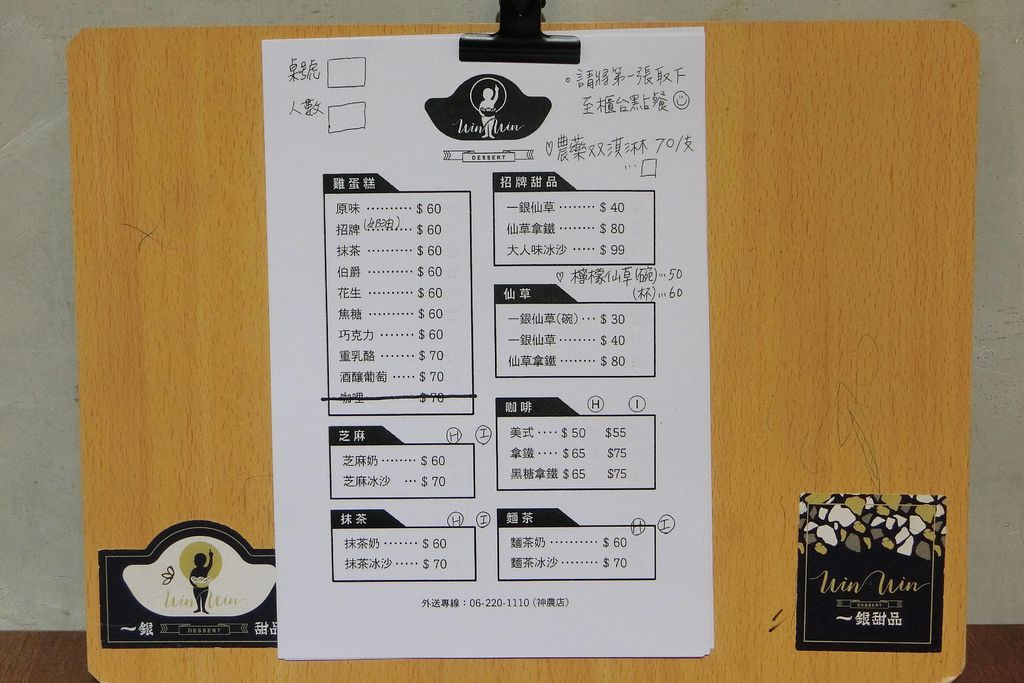 桌號
人數
。請將第一張取下
至櫃台點餐
Win Win
DESSERT
♡農藥双淇淋 70/支
...
雞蛋糕
原味 ·········· $ 60
招牌(奶油)·········· $ 60
抹茶 ·········· $ 60
伯爵 ·········· $ 60
花生 ·········· $ 60
焦糖 ·········· $ 60
巧克力 ········ $ 60
重乳酪 ······· $ 70
酒釀葡萄 ····· $ 70
咖哩 $ 70
芝麻 H I
芝麻奶 ········ $ 60
芝麻冰沙 ··· $ 70
抹茶 H I
抹茶奶 ········ $ 60
抹茶冰沙 ····· $ 70
招牌甜品
一銀仙草 ········ $ 40
仙草拿鐵 ········ $ 80
大人味冰沙 ····· $ 99
♡ 檸檬仙草(碗)...50
(杯)...60
仙草
一銀仙草(碗) ··· $ 30
一銀仙草 ········ $ 40
仙草拿鐵 ········ $ 80
咖啡 H I
美式 ···· $ 50 $55
拿鐵 ···· $ 65 $75
黑糖拿鐵 $ 65 $75
麵茶 H I
麵茶奶 ·········· $ 60
麵茶冰沙 ······· $ 70
外送專線：06-220-1110 (神農店)
Win Win
一銀 DESSERT 甜品
Win Win
DESSERT
一銀甜品